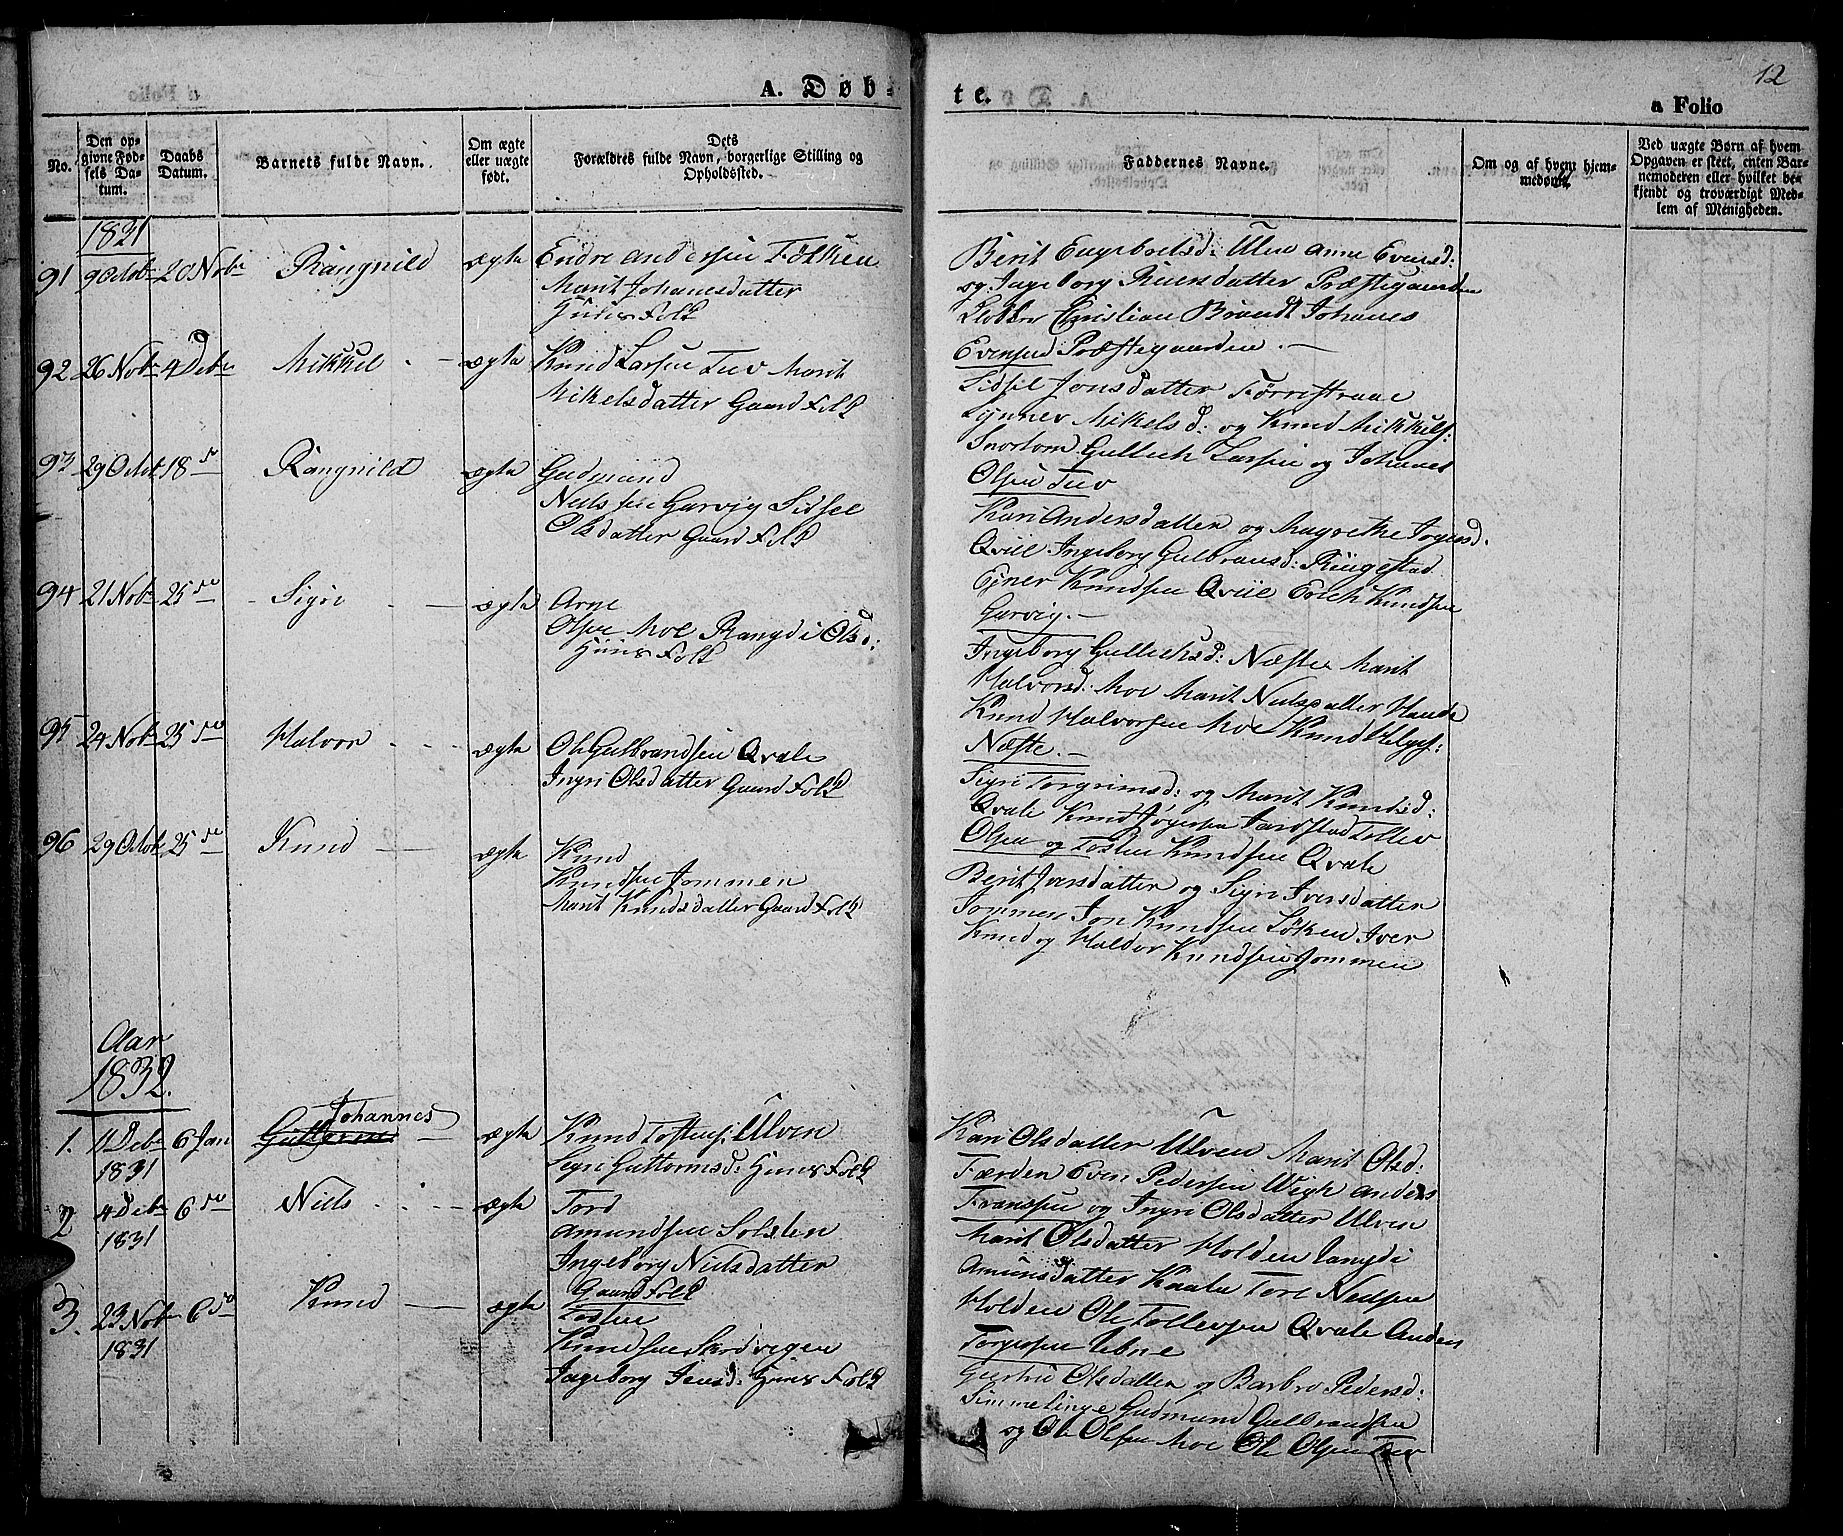 12
A. Døb-
te.
a Folio
No.
Den op-
givne Fød-
sels Da-
tum.
Daabs
Datum.
Barnets fulde Navn.
Om ægte
eller uægte
født.
Dets
Forældres fulde Navn, borgerlige Stilling og
Opholdssted.
Faddernes Navne.
Om og af hvem hjem-
medøbt.
Ved uægte Børn af hvem
Opgaven er skeet, enten Bar-
nemoderen eller hvilket be-
kjendt og troværdigt Med-
lem af Menigheden.
1831
91 9 Octob 20 Nobr Rangnild ægte Endre Andersen Følken
Marit Johanesdatter
Huus Folk
Berit Engebretsd: Ulen Anne Evensd:
og Ingeborg Iversdatter Præstegaarden
Klokker Christian Brandt Johanes
Evensen Præstegaarden. —
92 26 Nobr 4 Debr Mikkel - - ægte Knud Larsen Tuv Marit
Mikelsdatter Gaard Folk
Sidsel Jonsdatter Tørrestraae
Synnev Mikelsd: og Knud Mikkels:
Snortom Gullich Larsen og Johanes
Olsen Tuv
93 29 Octob 18 do Rangnild ægte Gudmund
Nielssen Garvig Sidsel
Olsdatter Gaard Folk
Kari Andersdatter og Magrethe Jogensd.
Qviie Ingeborg Gulbransd: Ringestad
Ejner Knudsen Qviie Erich Knudsen
Garvig. —
94 21 Nobr 25 do - Sigri - — ægte Arne
Olsen Moe Rangdi Olsd:
Huus Folk
Ingeborg Gullichsd: Næste Marit
Halvorsd: Moe Marit Nielsdatter Hande
Knud Halvorsen Moe Knud Helges:
Næste. —
95 24 Nobr 25 do Halvor - - - ægte Ole Gulbrandsen Qvale
Ingri Olsdatter Gaard Folk
Sigri Torgrimsd: og Marit Knudsd:
Qvale Knud Jøgersen Jarstad Tollev
Olsen og Tosten Knudsen Qvale
96 29 Octob 25 do Knud — ægte Knud
Knudsen Jommen
Marit Knudsdatter Gaard Folk
Berit Iversdatter og Sigri Iversdatter
Jommen Jon Knudsen Løken Iver
Knud og Haldor Knudsen Jommen
Aar
1832.
Johannes
1. 11 Debr 6 Jan Guttorm — ægte Knud Tostens: Ulven
1831 Sigri Guttormsd: Huus Folk
Kari Olsdatter Ulven Marit Olsd:
Færden Even Pedersen Wigh Anders
Fransen og Ingri Olsdatter Ulven
2 4 Debr 6 do Niels - - - ægte Tord
1831 Amundsen Solsten
Ingeborg Nielsdatter
Gaard Folk
Marit Olsdatter Holden Rangdi
Amunsdatter Kaale Tore Nielsen
Holden Ole Tollevsen Qvale Anders
Torgersen Ebne
3. 23 Nobr 6 do Knud — ægte Tosten
1831 Knudsen
Ingeborg Jensd: Huus Folk
Giertrud Olsdatter og Barbro Pedersd:
Simmelinge Gudmund Gulbrandsen
og Ole Olsen Moe Ole Olsen Tuv